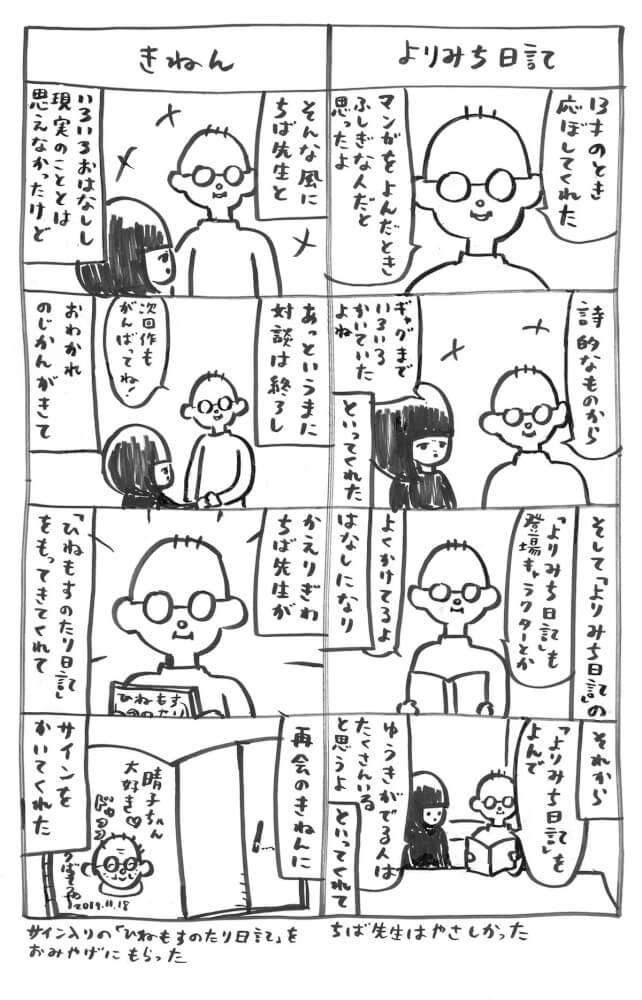 よりみち日記
13才のとき
応ぼしてくれた
マンガをよんだとき
ふしぎな人だと
思ったよ
詩的なものから
ギャグまで
いろいろ
かいていた
よね
といってくれた
そして「よりみち日記」の
はなしになり
「よりみち日記」も
登場キャラクターとか
よくかけてるよ
それから
「よりみち日記」を
よんで
ゆうきがでる人は
たくさんいる
と思うよ
といってくれて
ちば先生はやさしかった
きねん
そんな風に
ちば先生と
いろいろおはなしし
現実のこととは
思えなかったけど
あっというまに
対談は終了し
次回作も
がんばってね!
おわかれ
のじかんがきて
かえりぎわ
ちば先生が
「ひねもすのたり日記」
をもってきてくれて
ひねもす
のたり
再会のきねんに
サインを
かいてくれた
晴子ちゃん
大好き♡
2019.11.18
サイン入りの「ひねもすのたり日記」を
おみやげにもらった